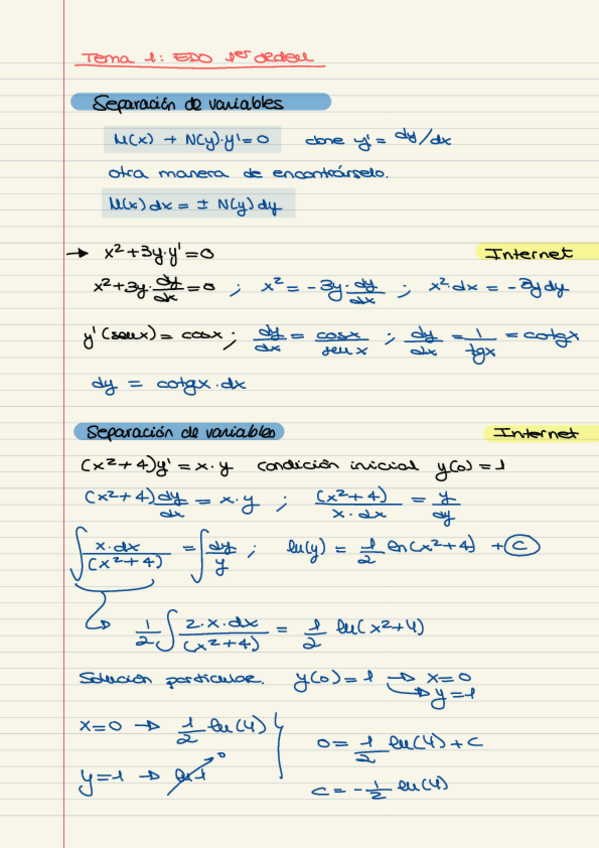 Tema 1: EDO 1er orden
Separación de variables
M(x) + N(y)·y' = 0 done y' = dy/dx
otra manera de encontrárselo.
M(x)dx = ± N(y)dy
→ x² + 3y·y' = 0 Internet
x² + 3y·dy/dx = 0 ; x² = -3y·dy/dx ; x²dx = -3ydy
y'(senx) = cosx ; dy/dx = cosx/senx ; dy/dx = 1/tgx = cotgx
dy = cotgx·dx
Separación de variables Internet
(x²+4)y' = x·y condición inicial y(0) = 1
(x²+4)dy/dx = x·y ; (x²+4)/x·dx = y/dy
∫ x·dx/(x²+4) = ∫ dy/y ; ln(y) = 1/2 ln(x²+4) + C
1/2 ∫ 2·x·dx/(x²+4) = 1/2 ln(x²+4)
Solución particular. y(0) = 1 → x=0
→ y=1
x=0 → 1/2 ln(4)
0 = 1/2 ln(4) + C
y=1 → ln1 0
C = -1/2 ln(4)